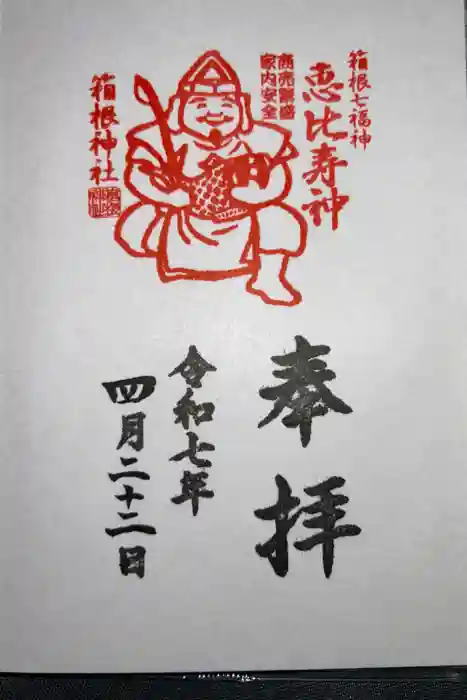 箱根七福神
恵比寿神
商売繁盛
家内安全
箱根神社
奉拝
令和七年
四月二十二日